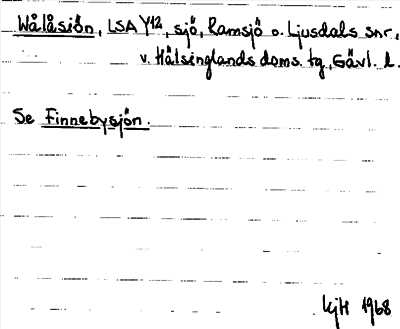 Wålåsiön, LSA Y12, sjö, Ramsjö o. Ljusdals snr,
v. Hälsinglands doms. tg, Gävl. l.
Se Finnebysjön.
KjH 1968